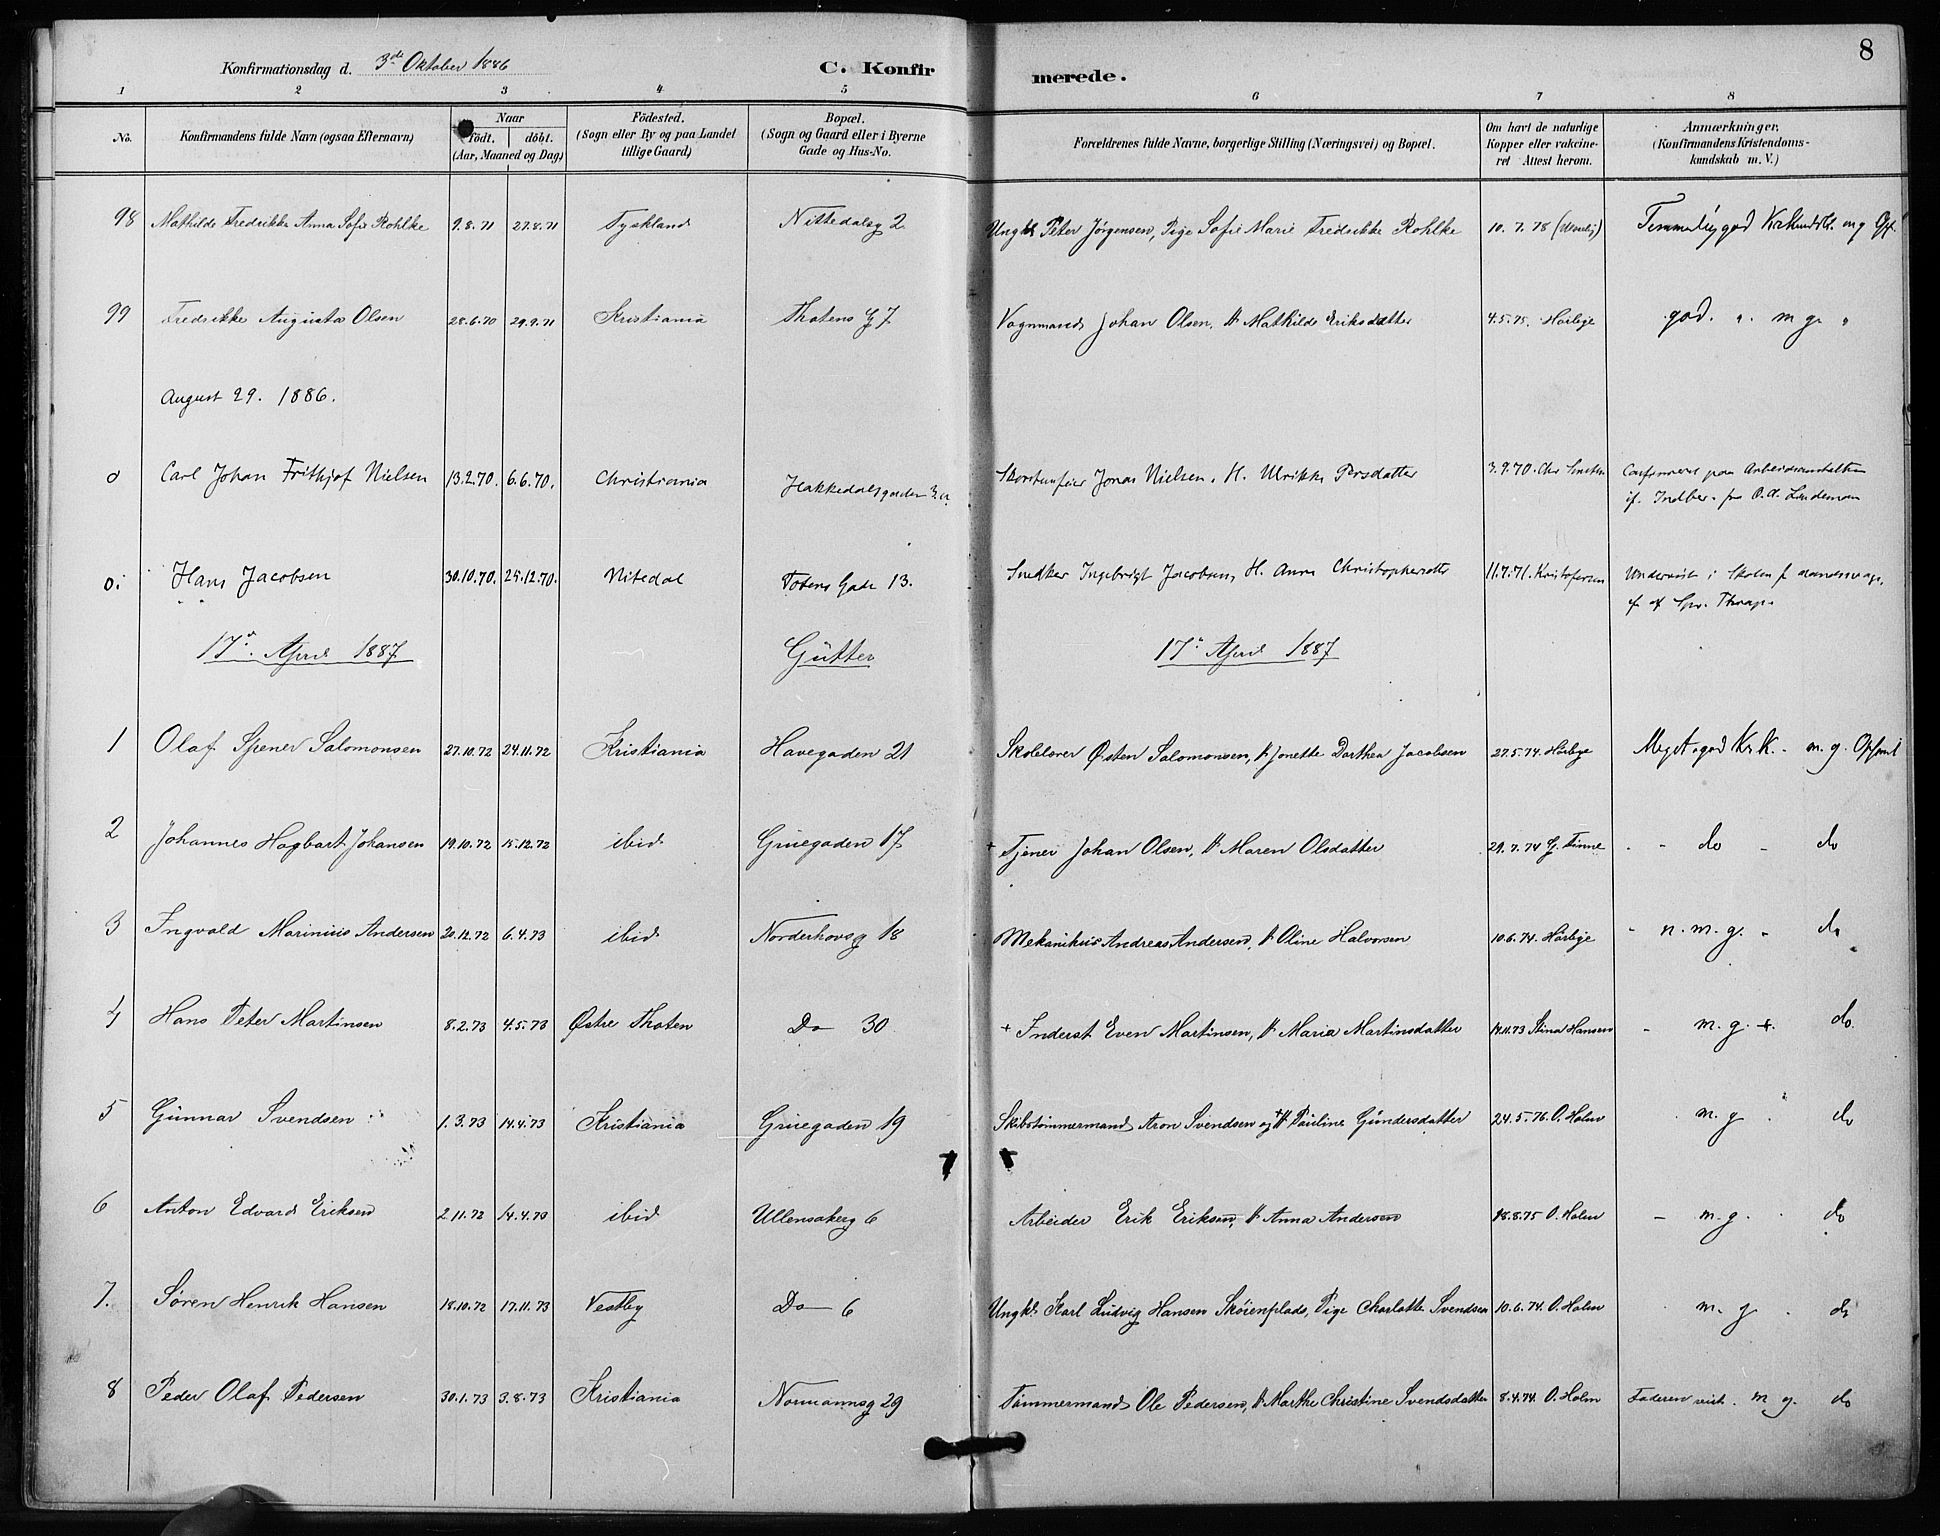 Konfirmationsdag d. 3de Oktober 1886 C. Konfirmerede. 8
1 2 3 4 5 6 7 8
No. Konfirmandens fulde Navn (ogsaa Efternavn) Naar födt. döbt. (Aar, Maaned og Dag) Födested. (Sogn eller By og paa Landet tillige Gaard) Bopæl. (Sogn og Gaard eller i Byerne Gade og Hus-No. Forældrenes fulde Navne, borgerlige Stilling (Næringsvei) og Bopæl. Om havt de naturlige Kopper eller vakcineret Attest herom. Anmærkninger, (Konfirmandens Kristendomskundskab m. V.)
98 Mathilde Fredrikke Anna Sofie Rohlke 9.8.71 27.8.71 Tyskland Nittedalsg 2 Ungkl Peter Jørgensen, Pige Sofie Marie Fredrikke Rohlke 10.7.78 Temmelig god
99 Fredrikke Augusta Olsen 28.6.70 29.9.71 Kristiania Thotens G 7 Vognmand Johan Olsen, H Mathilde Eriksdatter 4.5.75. Hörbye god. " m g "
August 29. 1886.
0 Carl Johan Frithjof Nielsen 13.2.70. 6.6.70. Christiania Hakkedalsgaden Skorstensfeier Jonas Nielsen, H. Ulrikke Persdatter 3.9.70. Confirmeret paa Arbeidsanstalten
if. Indber. fra O.A. Lindeman
0: Hans Jacobsen 30.10.70. 25.12.70. Nitedal Totens Gade 13. Snedker Ingebrigt Jacobsen, H. Anne Christophersdtr 11.7.71. Kristofersen Undervist i Skolen f
17de April 1887 Gutter 17de April 1887
1 Olaf Spener Salomonsen 27.10.72 24.11.72 Kristiania Havegaden 21 Skolelærer Østen Salomonsen, H Jonette Dorthea Jacobsen 27.5.74 Hörbye Meget god Kr.K. - m.g. Opførsel
2 Johannes Hagbart Johansen 19.10.72 15.12.72 ibid Gruegaden 17 + Tjener Johan Olsen, H Maren Olsdatter 29.7.74 G. Finne " - do - do
3 Ingvald Marinius Andersen 20.12.72 6.4.73 ibid Norderhovsg 18 Mekanikus Andreas Andersen, H Oline Halvorsen 10.6.74. Hörbye - n. m. g. - do
4 Hans Peter Martinsen 8.2.73 4.5.73 Østre Thoten Do 30 + Inderst Even Martinsen, H Maria Martinsdatter 14.11.73 Stina Hansen - m. g. +. do.
5 Gunnar Svendsen 1.3.73 14.4.73 Kristiania Gruegaden 19 Skibstømmermand Aron Svendsen og + H Pauline Gundersdatter 24.5.76. O. Holm . m. g " do
6 Anton Edvard Eriksen 2.11.72 14.4.73 ibid Ullensakerg 6 Arbeider Erik Eriksen, H Anna Andersen 18.8.75 O. Holm - m. g. . do
7. Søren Henrik Hansen 18.10.72 17.11.73 Vestby Do 6 Ungkl. Karl Ludvig Hansen Skøienplads, Pige Charlotte Svendsen 10.6.74. O. Holm . m. g . do
8 Peder Olaf Pedersen 30.1.73 3.8.73 Kristiania Normannsg 29 Tømmermand Ole Pedersen, H Marthe Christine Svendsdatter 8.4.74. O. Holm Faderen . m g. do